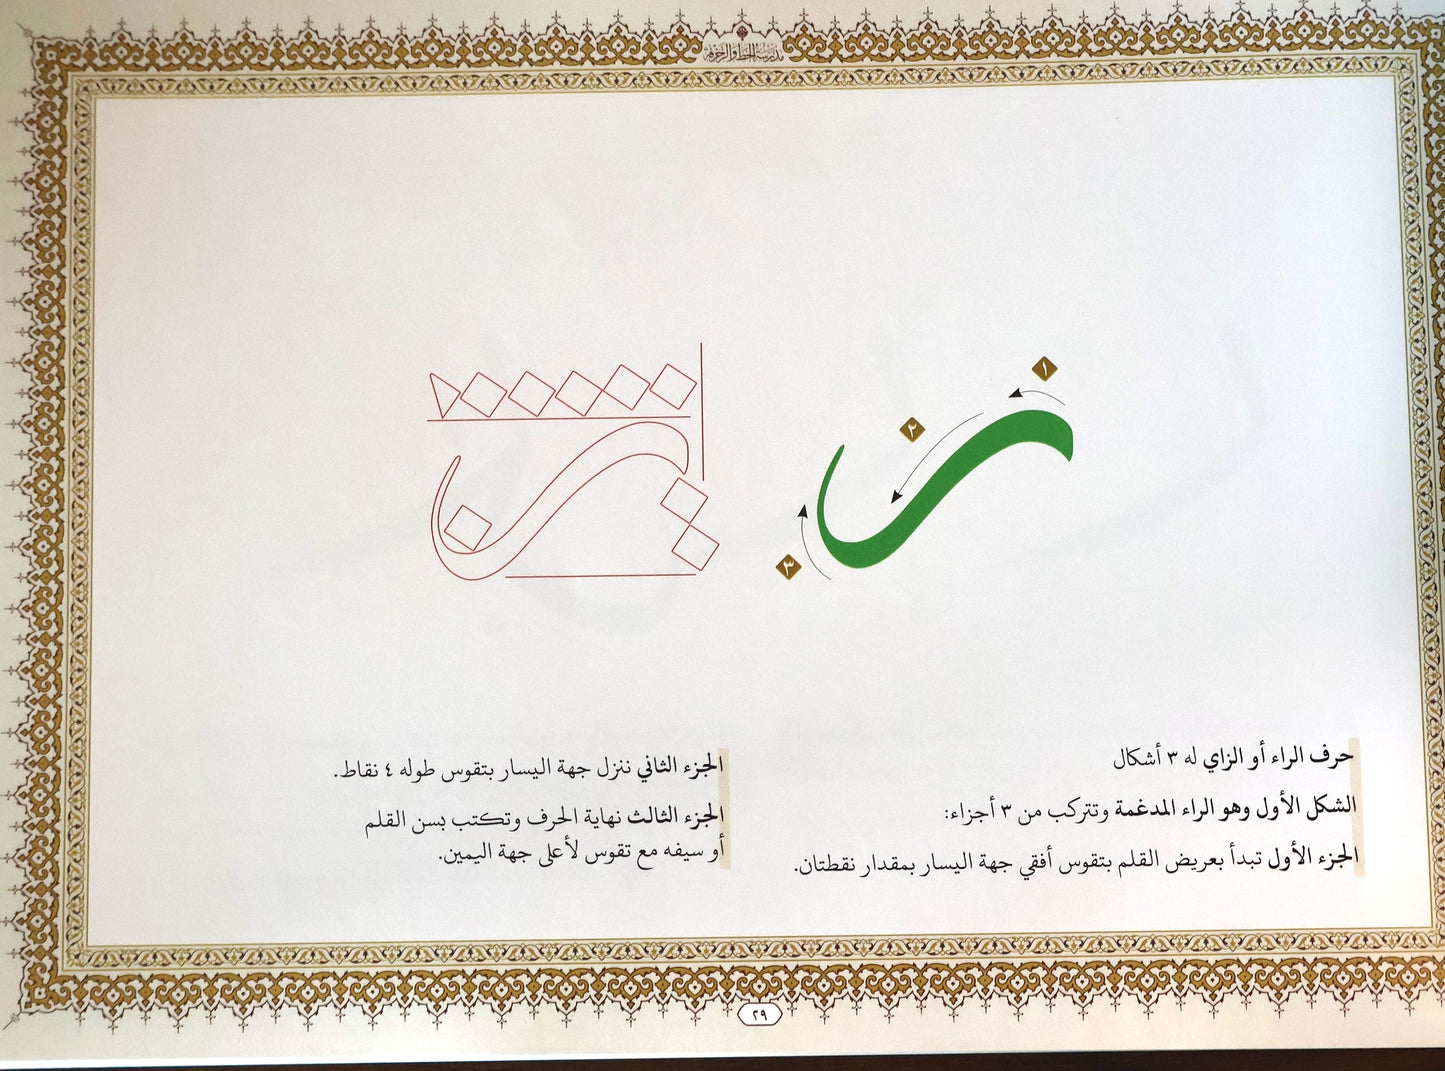 مدرسة الخط والزخرفة
١
٢
٣
حرف الراء أو الزاي له ٣ أشكال
الشكل الأول وهو الراء المدغمة وتتركب من ٣ أجزاء:
الجزء الأول تبدأ بعريض القلم بتقوس أفقي جهة اليسار بمقدار نقطتان.
الجزء الثاني ننزل جهة اليسار بتقوس طوله ٤ نقاط.
الجزء الثالث نهاية الحرف وتكتب بسن القلم
أو سيفه مع تقوس لأعلى جهة اليمين.
٢٩